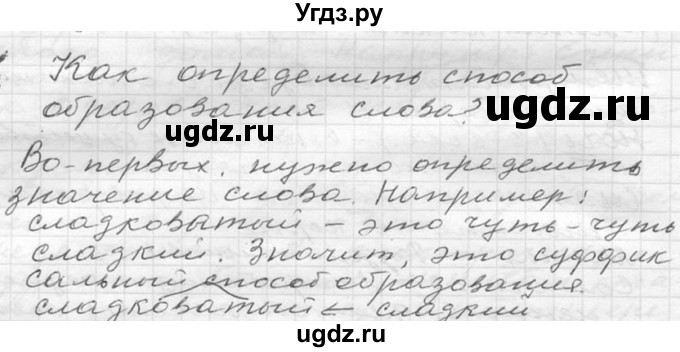 Угдз.ру
Как определить способ
образования слова?
ugdz.ru
ugdz.ru
Во-первых, нужно определить
значение слова. Например:
сладковатый – это чуть-чуть
сладкий. Значит, это суффик
сальный способ образования.
сладковатый ← сладкий
ugdz.ru